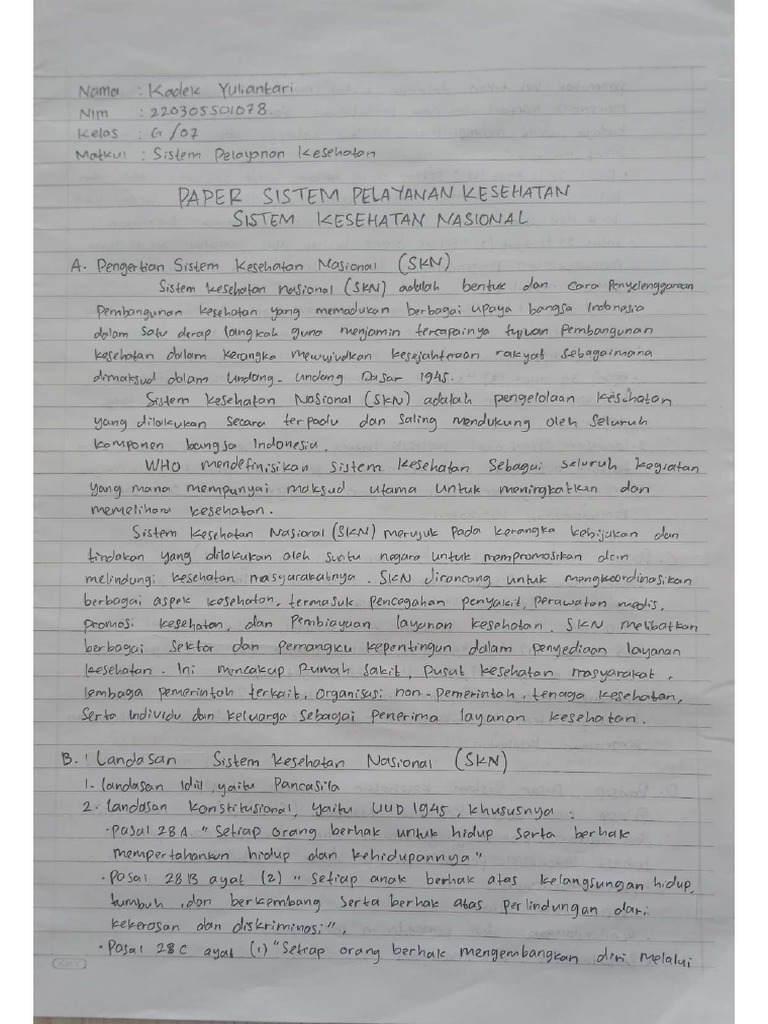 Nama : Kadek Yuliantari
Nim : 220305501078
Kelas : G/07
Matkul : Sistem Pelayanan Kesehatan
PAPER SISTEM PELAYANAN KESEHATAN
SISTEM KESEHATAN NASIONAL
A. Pengertian Sistem Kesehatan Nasional (SKN)
Sistem kesehatan nasional (SKN) adalah bentuk dan cara Penyelenggaraan
Pembangunan kesehatan yang memadukan berbagai upaya bangsa Indonesia
dalam satu derap langkah guna menjamin tercapainya tujuan Pembangunan
kesehatan dalam kerangka mewujudkan kesejahteraan rakyat sebagaimana
dimaksud dalam Undang-Undang Dasar 1945.
Sistem kesehatan Nasional (SKN) adalah pengelolaan kesehatan
yang dilakukan secara terpadu dan saling mendukung oleh seluruh
komponen bangsa Indonesia.
WHO mendefinisikan sistem kesehatan sebagai seluruh kegiatan
yang mana mempunyai maksud utama untuk meningkatkan dan
memelihara kesehatan.
Sistem kesehatan Nasional (SKN) merujuk pada kerangka kebijakan dan
tindakan yang dilakukan oleh suatu negara untuk mempromosikan dan
melindungi kesehatan masyarakatnya. SKN dirancang untuk mengkoordinasikan
berbagai aspek kesehatan, termasuk pencegahan penyakit, perawatan medis,
promosi kesehatan, dan Pembiayaan layanan kesehatan. SKN melibatkan
berbagai sektor dan pemangku kepentingan dalam penyediaan layanan
kesehatan. Ini mencakup Rumah sakit, Pusat kesehatan masyarakat,
lembaga pemerintah terkait, organisasi non-pemerintah, tenaga kesehatan,
Serta individu dan keluarga sebagai penerima layanan kesehatan.
B. Landasan Sistem Kesehatan Nasional (SKN)
1. landasan Idiil, yaitu Pancasila
2. landasan Konstitusional, yaitu UUD 1945, khususnya :
• Pasal 28A "Setiap orang berhak untuk hidup serta berhak
mempertahankan hidup dan kehidupannya"
• Pasal 28B ayat (2) "Setiap anak berhak atas kelangsungan hidup,
tumbuh, dan berkembang serta berhak atas perlindungan dari
kekerasan dan diskriminasi",
• Pasal 28C ayat (1) "Setiap orang berhak mengembangkan diri melalui